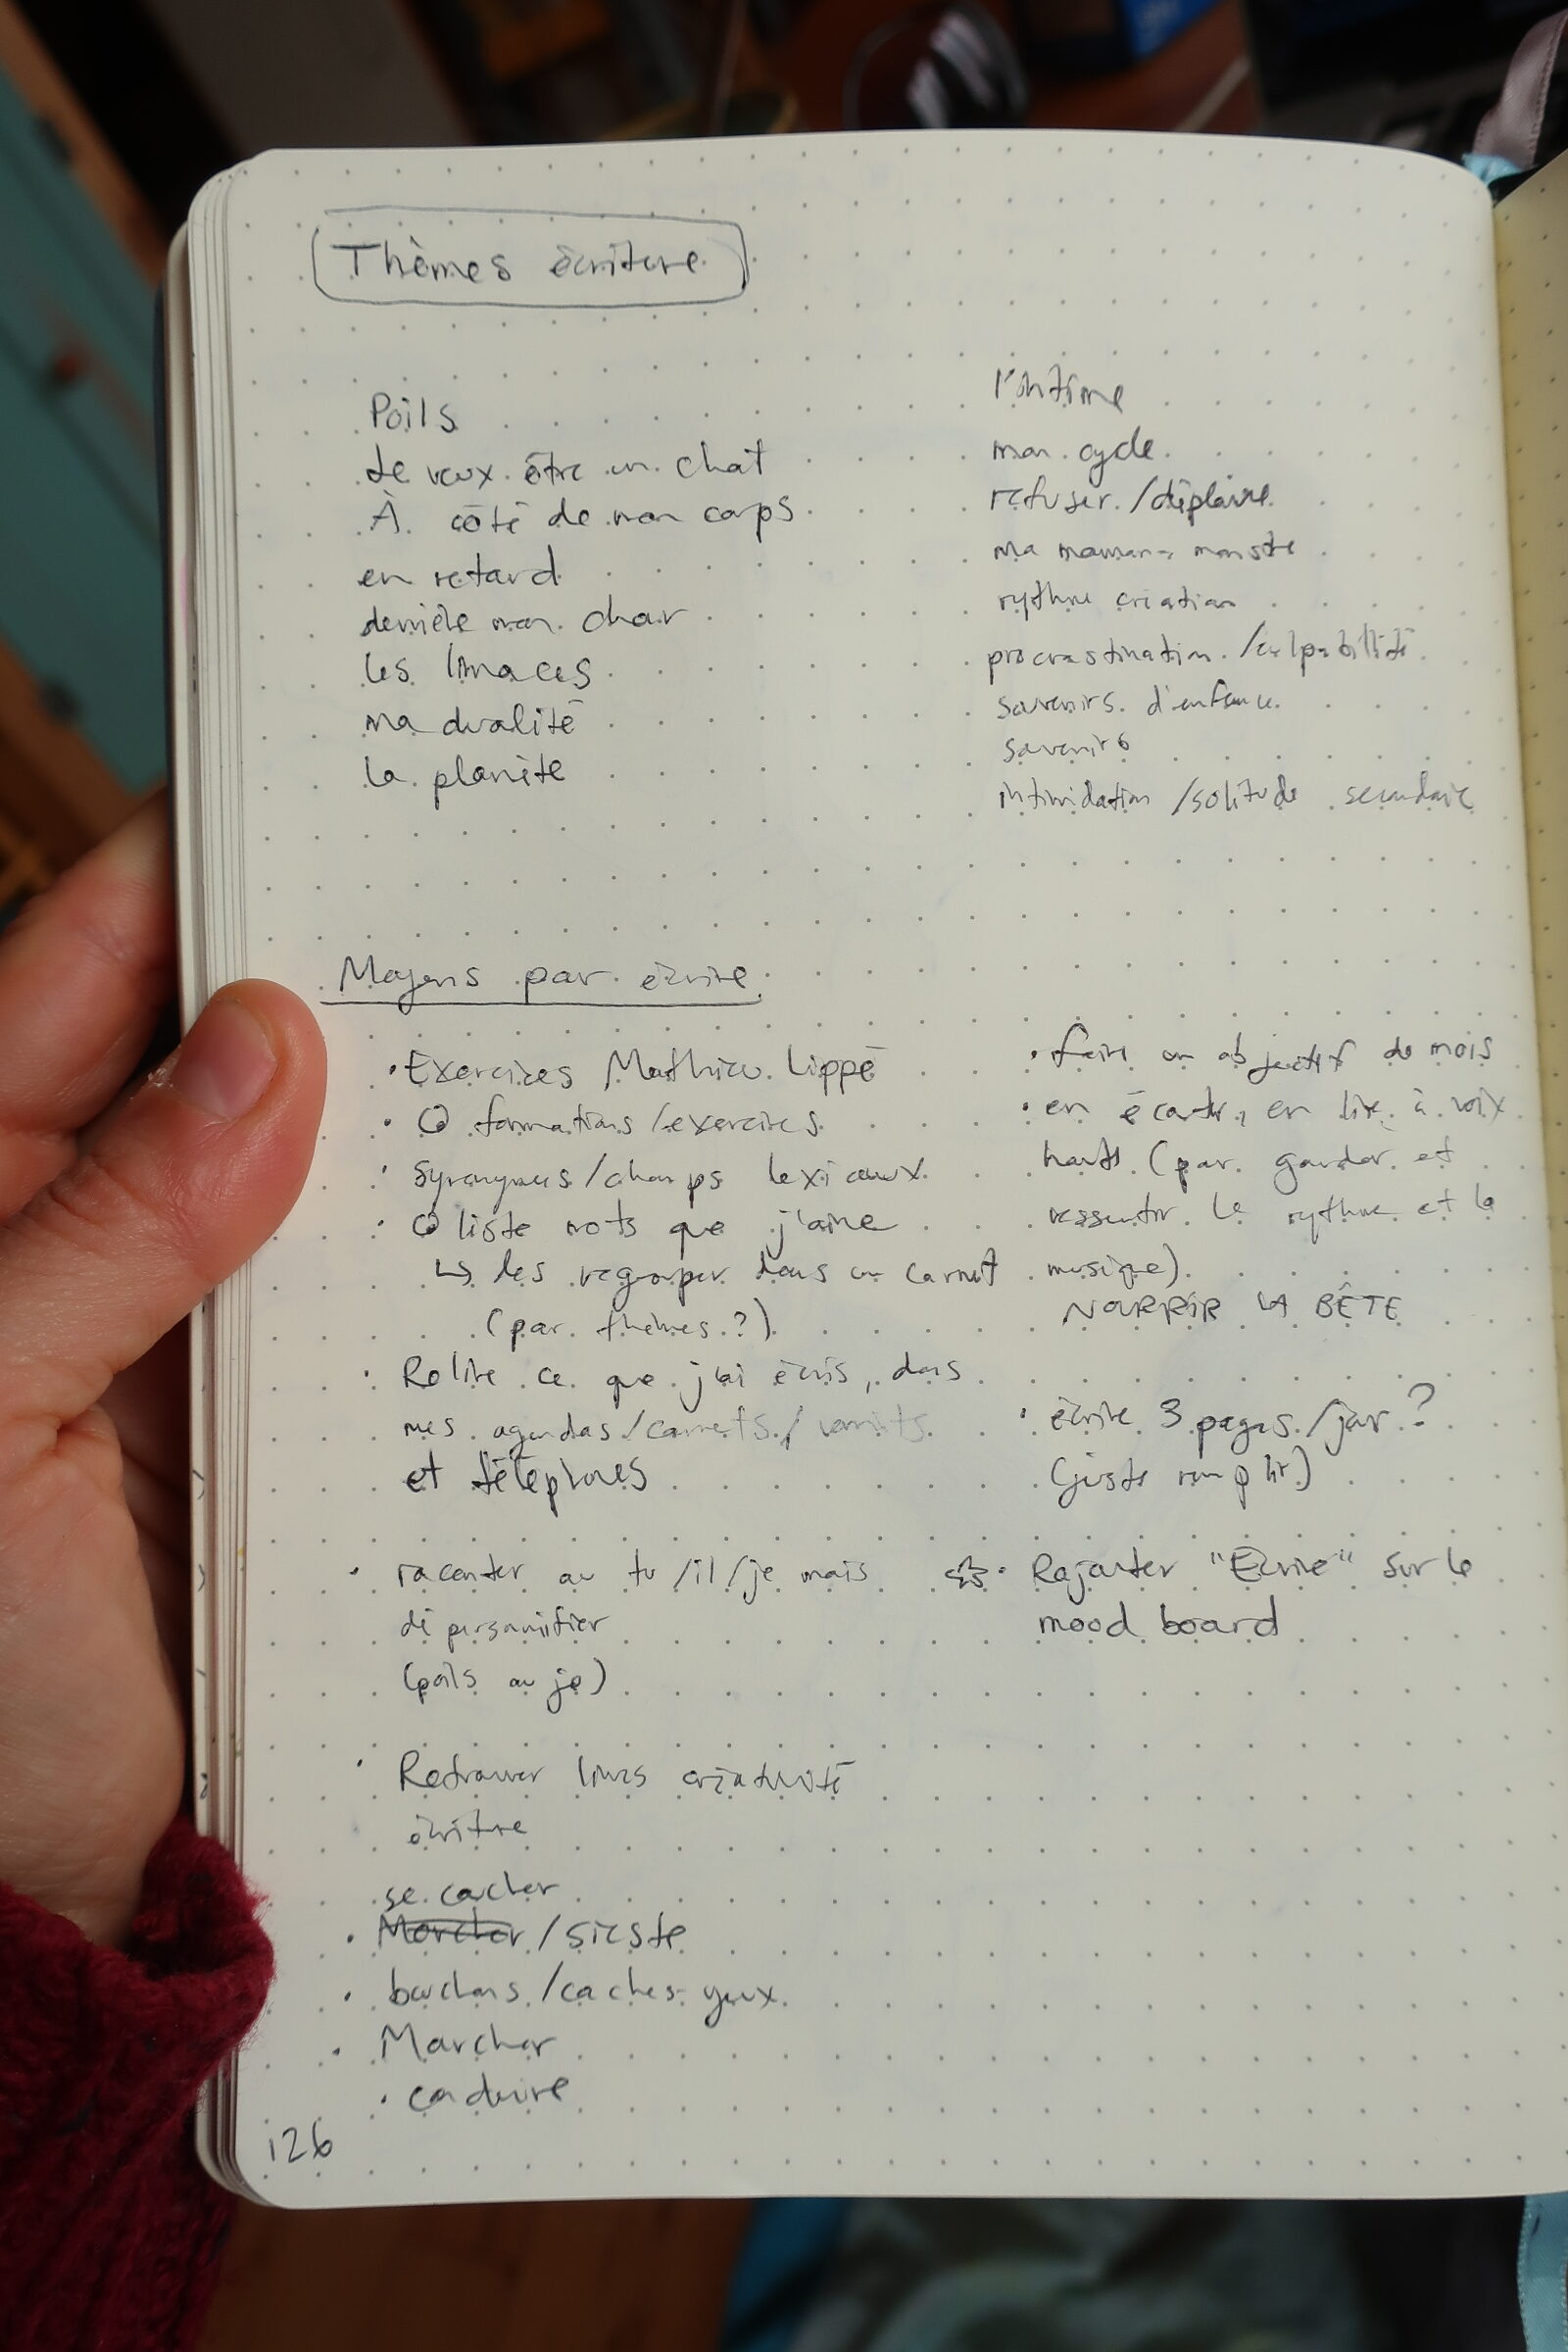 Thèmes écriture
Poils
Je veux être un chat
À côté de mon corps
en retard
derrière mon char
les limaces
ma dualité
la planète
l'intime
mon cycle
refuser/déplaire
ma maman monstre
rythme création
procrastination/culpabilité
souvenirs d'enfance
souvenirs
intimidation/solitude secondaire
Moyens pour écrire
• Exercices Mathieu Lippé
• formations/exercices
• synonymes/champs lexicaux
• liste mots que j'aime
↳ les regrouper dans un carnet
(par thèmes?)
• Relire ce que j'ai écris, dans
mes agendas/carnets/
et téléphones
• raconter au tu/il/je mais
dépersonnifier
(poils au je)
• Retrouver livres créativité
écriture
se cacher
• Marcher/sieste
• bouchons/caches-yeux
• Marcher
• conduire
• faire un objectif de mois
• en écouter, en lire à voix
haute (pour garder et
ressentir le rythme et la
musique)
NOURRIR LA BÊTE
• écrire 3 pages/jour?
(juste remplir)
☆• Rajouter "Écrire" sur le
mood board
126